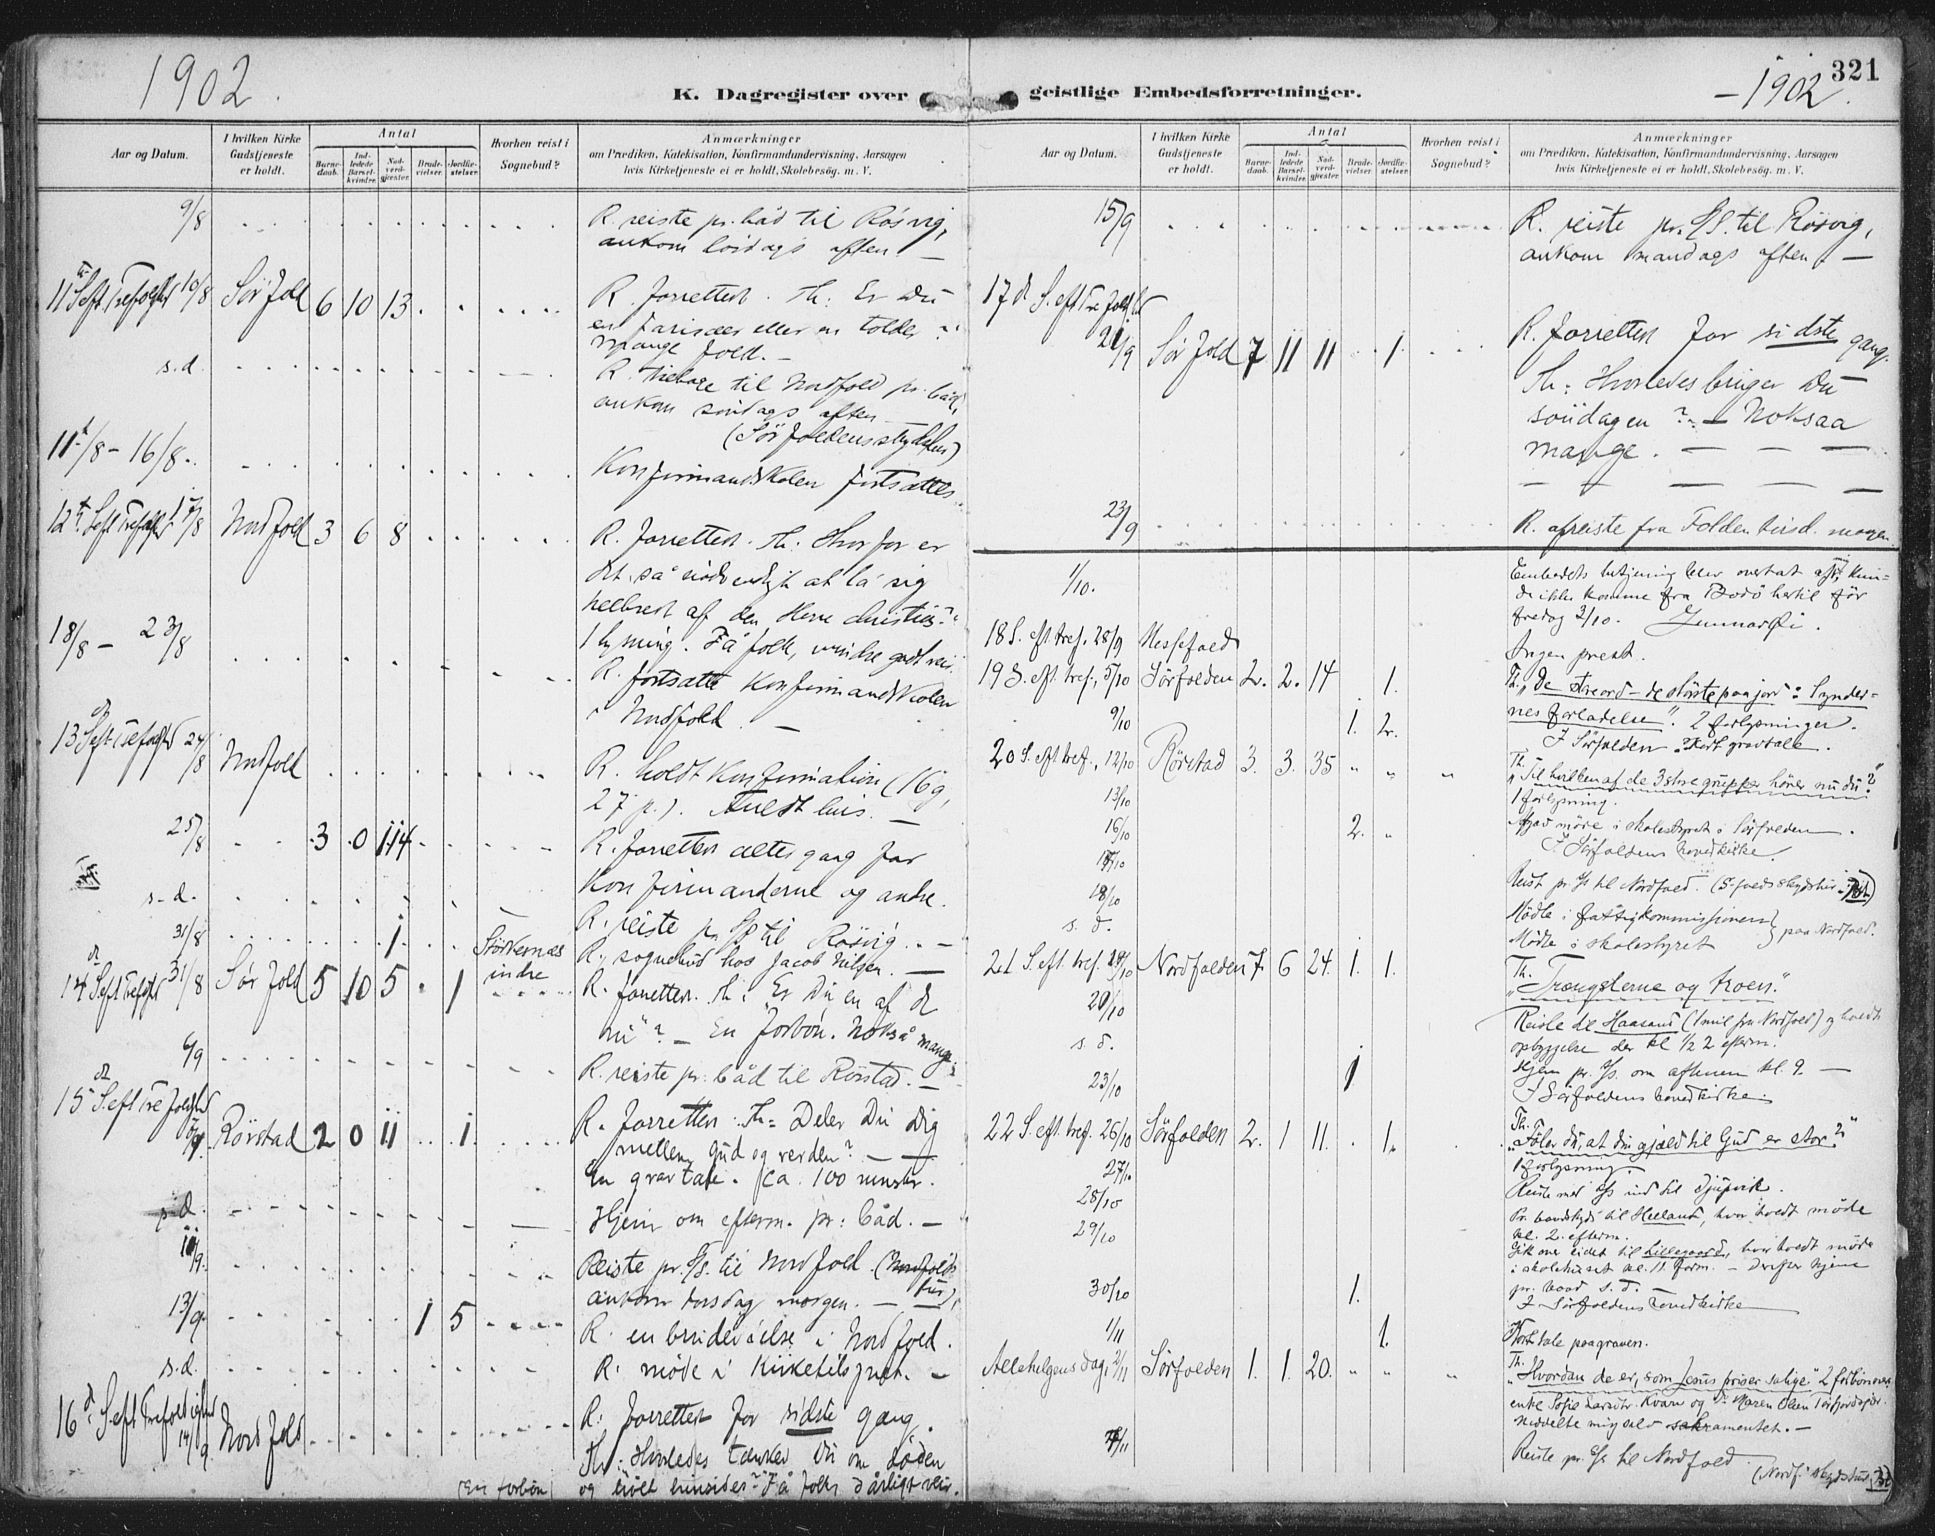 1902
K. Dagregister over
Aar og Datum.
I hvilken Kirke Gudstjeneste er holdt.
Antal
Barne-daab.
Ind-ledede Barsel-kvinder.
Nad-verd-gjæster.
Brude-vielser.
Jordfæ-stelser.
Hvorhen reist i Sognebud?
Anmærkninger
om Prædiken, Katekisation, Konfirmandundervisning, Aarsagen
hvis Kirketjeneste ei er holdt, Skolebesög. m. V.
9/8 R. reiste pr. båd til Rösvig,
ankom lördags aften —
11 S eft Trefoldgh 10/8 Sör Fold 6 10 13 R. forrettet. Th: Er Du
en farisæer eller en tolder?
Mange folk. —
s.d. R. tilbage til Nordfold pr. båd,
ankom söndags aften
(Sörfoldens
11/8 – 16/8. Konfirmandskolen fortsattes.
12 S. eft Trefoldgh 17/8 Nordfold 3 6 8 R. forrettet. Th: Hvorfor er
det så nödvendigt at la sig
helbred af den Herre christus?"
1 lysning. Få folk, mindre godt veir.
18/8 – 23/8 R. fortsatte Konfirmandskolen
i Nordfold. —
13 S eft Trefoldgh 24/8 Nordfold R. holdt Konfirmation (16 g,
27 p.). Fuldt hus. —
25/8 3 0 114 R. forrettet altergang for
Konfirmanderne og andre.
s.d. R. reiste pr. til Rösvig. —
31/8 1 Störkernæs indre R. sognebud hos Jacob Nilsen. —
14 S eft Trefoldgh 31/8 Sör Fold 5 10 5 1 R. forrettet. Th: "Er Du en af de
ni"? — En forbön. Nokså mange
6/9 R. reiste pr. båd til Rörstad. —
15 S eft Trefoldghd 7/9 Rörstad 2 0 11 1 R. forrettet. Th: Deler Du Dig
mellem Gud og verden? —
En gravtale. Ca. 100 mnskr.
s.d. Hjem om efterm. pr. båd. —
11/9 Reiste pr. D/S. til Nordfold.
ankom torsdag morgen. —
13/9 1 5 R. en brudevielse i Nordfold.
s.d. R. möde i Kirketilsynet. —
16 S. eft Trefoldighed 14/9 Nordfold R. forrettet for sidste gang.
Th: Hvorledes tænker Du om döden
(En forbön) og livet hinsides? Få folk, dårligt veir.
321
– 1902.
geistlige Embedsforretninger.
Aar og Datum.
I hvilken Kirke Gudstjeneste er holdt.
Antal
Barne-daab.
Ind-ledede Barsel-kvinder.
Nad-verd-gjæster.
Brude-vielser.
Jordfæ-stelser.
Hvorhen reist i Sognebud?
Anmærkninger
om Prædiken, Katekisation, Konfirmandundervisning, Aarsagen
hvis Kirketjeneste ei er holdt, Skolebesög. m. V.
15/9 R. reiste pr. D/S. til Rösvig,
ankom mandags aften. —
17 d S. eft Trefoldghd
21/9 Sör Fold 7 11 11 1 R. forrettet for sidste gang.
Th: Hvorledes bruger Du
söndagen? — Noksaa
mange. — — —
23/9 R. afreiste fra Folden tirsd. morgen.
1/10. Embedets betjening blev overtat af mig, kun-
de ikke komme fra Bodö hertil för
fredag 3/10. Gunnar Öi.
18 S. eft tref. 28/9 Ingen prest.
19 S. eft. tref., 5/10 Sörfolden 2. 2. 14 1. Th. "De treord – de störste paa jord: Synder-
nes forladelse". 2 forlysninger.
9/10 1. 2. I Sörfolden. Kort gravtale.
20 S. eft tref., 12/10 Rörstad 3. 3. 35 " " " Th. "Til hvilken af de 3 store grupper hörer nu du?"
1 forlysning.
13/10 möde i skolestyret i Sörfolden.
16/10 2. " I Sörfoldens hovedkirke.
17/10 Reist pr. D/S til Nordfold.
18/10 Mödte i fattigkommissionen
s. d. Mödte i skolestyret } paa Nordfold.
21 S. eft. tref. 19/10 Nordfolden 7. 6 24. 1. 1. Th. "Trængslerne og troen."
20/10 Reiste til (1 mil fra Nordfold) og holdt
opbyggelse der kl. 1/2 2 efterm.
s. d. Hjem pr. D/S. om aftenen kl. 9. —
23/10 1 I Sörfoldens hovedkirke.
22 S. eft. tref. 26/10 Sörfolden 2. 1 11. 1. Th. "Föler du, at din gjæld til Gud er stor?"
1 forlysning.
27/10 Reiste med D/S ind til Djupvik.
28/10 Pr. til Helland, hvor holdt möde
kl. 2 efterm.
29/10 Gik over eidet til Lillegaard, hvor holdt möde
i skolehuset kl. 11 form. — Derefter hjem
pr. baad s. d. —
30/10 1. I Sörfoldens hovedkirke
1/11 1. Kort tale paa graven.
Allehelgensdag, 2/11 Sörfolden 1. 1. 20. " " " Th. "Hvordan de er, som Jesus priser salige". 2 forbönner
enke Sofie Kvarv og Maren Olsen
Meddelte mig selv sakramentet. —
7/11 Reiste pr. D/S til Nordfold.